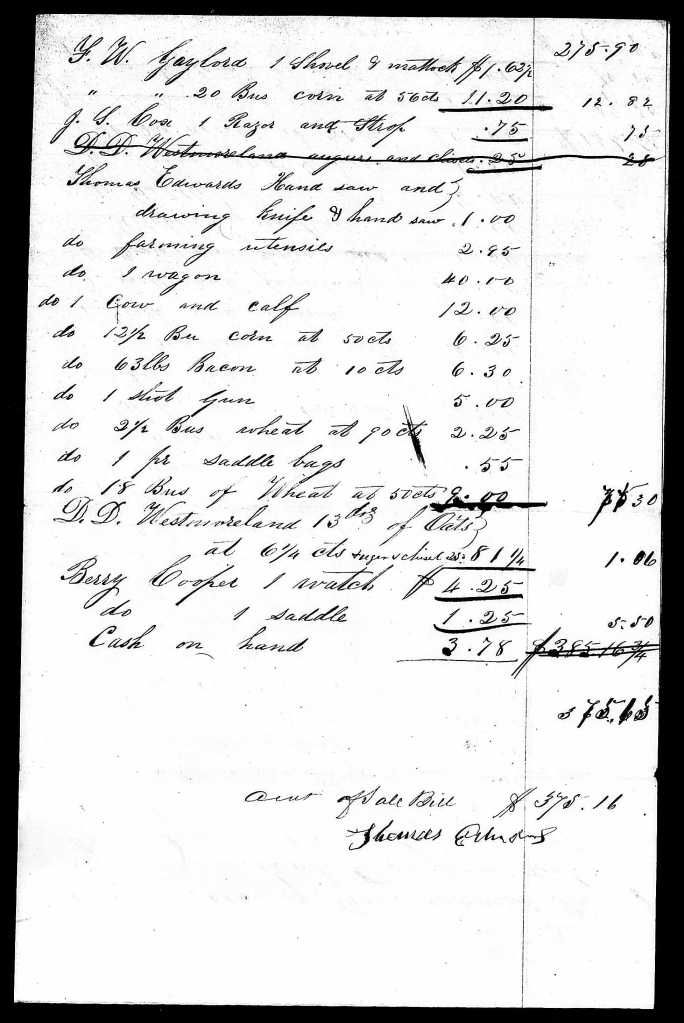 275.90
F. W. Gaylord 1 Shovel & mattock $1.62½
" " 20 Bus corn at 56cts 11.20 12.82
J. S. Cox 1 Razor and Strop .75 75
D. D. Westmoreland augurs and chisel .25 25
Thomas Edwards Hand saw and
drawing knife & hand saw 1.00
do farming utensils 2.95
do 1 wagon 40.00
do 1 Cow and calf 12.00
do 12½ Bu corn at 50cts 6.25
do 63lbs Bacon at 10 cts 6.30
do 1 shot Gun 5.00
do 2½ Bus wheat at 90 cts 2.25
do 1 pr saddle bags .55
do 18 Bus of Wheat at 50cts 9.00 30
D. D. Westmoreland 13 doz of Oats
at 6¼ cts auger & chisel 25 = 81¼ 1.06
Berry Cooper 1 watch $ 4.25
do 1 saddle 1.25 5.50
Cash on hand 3.78 $385.16¾
375.65
amt of Sale Bill $ 375.16
Thomas